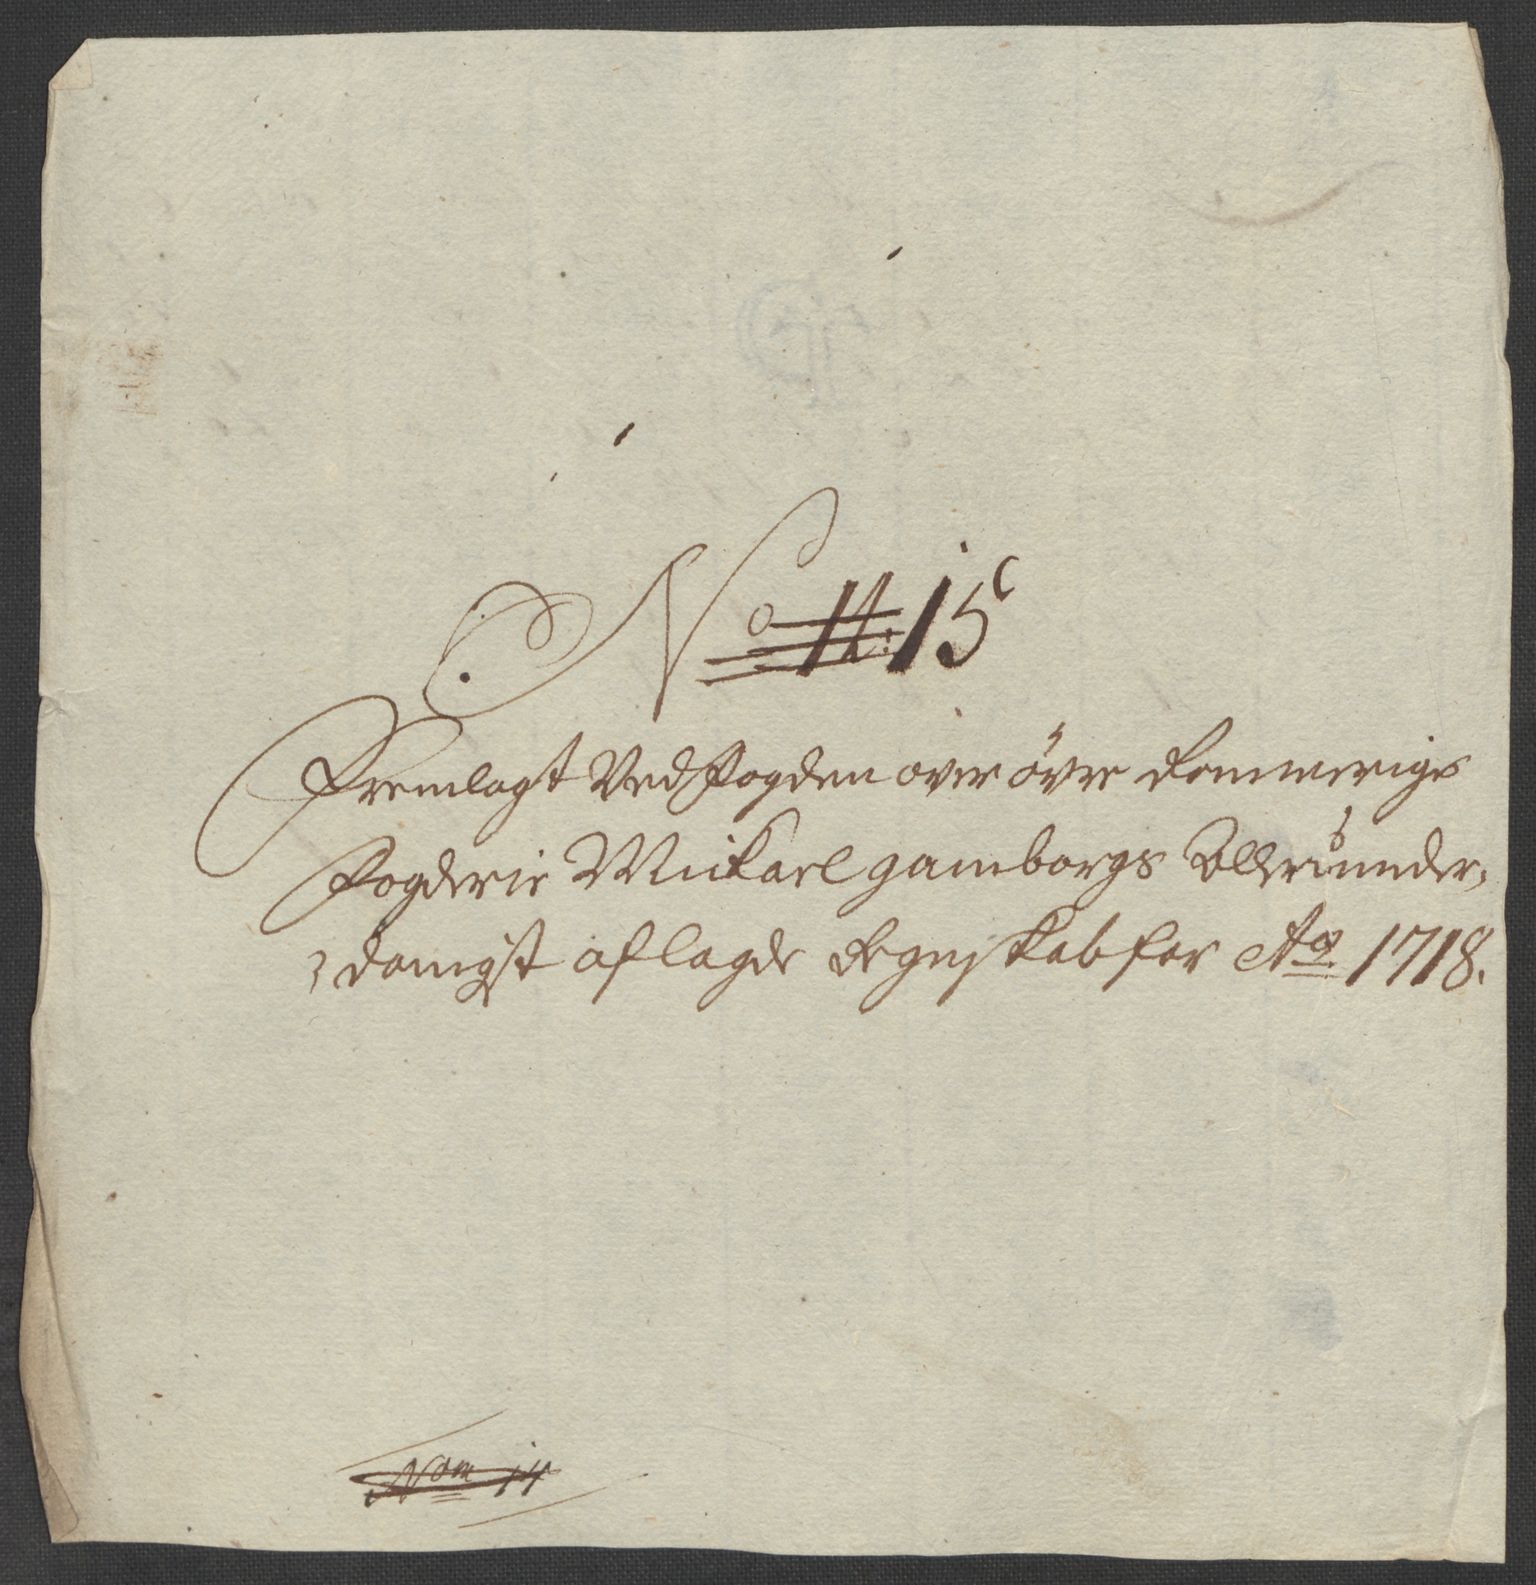 No 14: 15
Fremlagt Ved Fogden over övre Rommerigs
Fogderie Mickael Gamborgs Allerunder,
danigst aflagde Regnskab for Ao 1718.
Nom 14